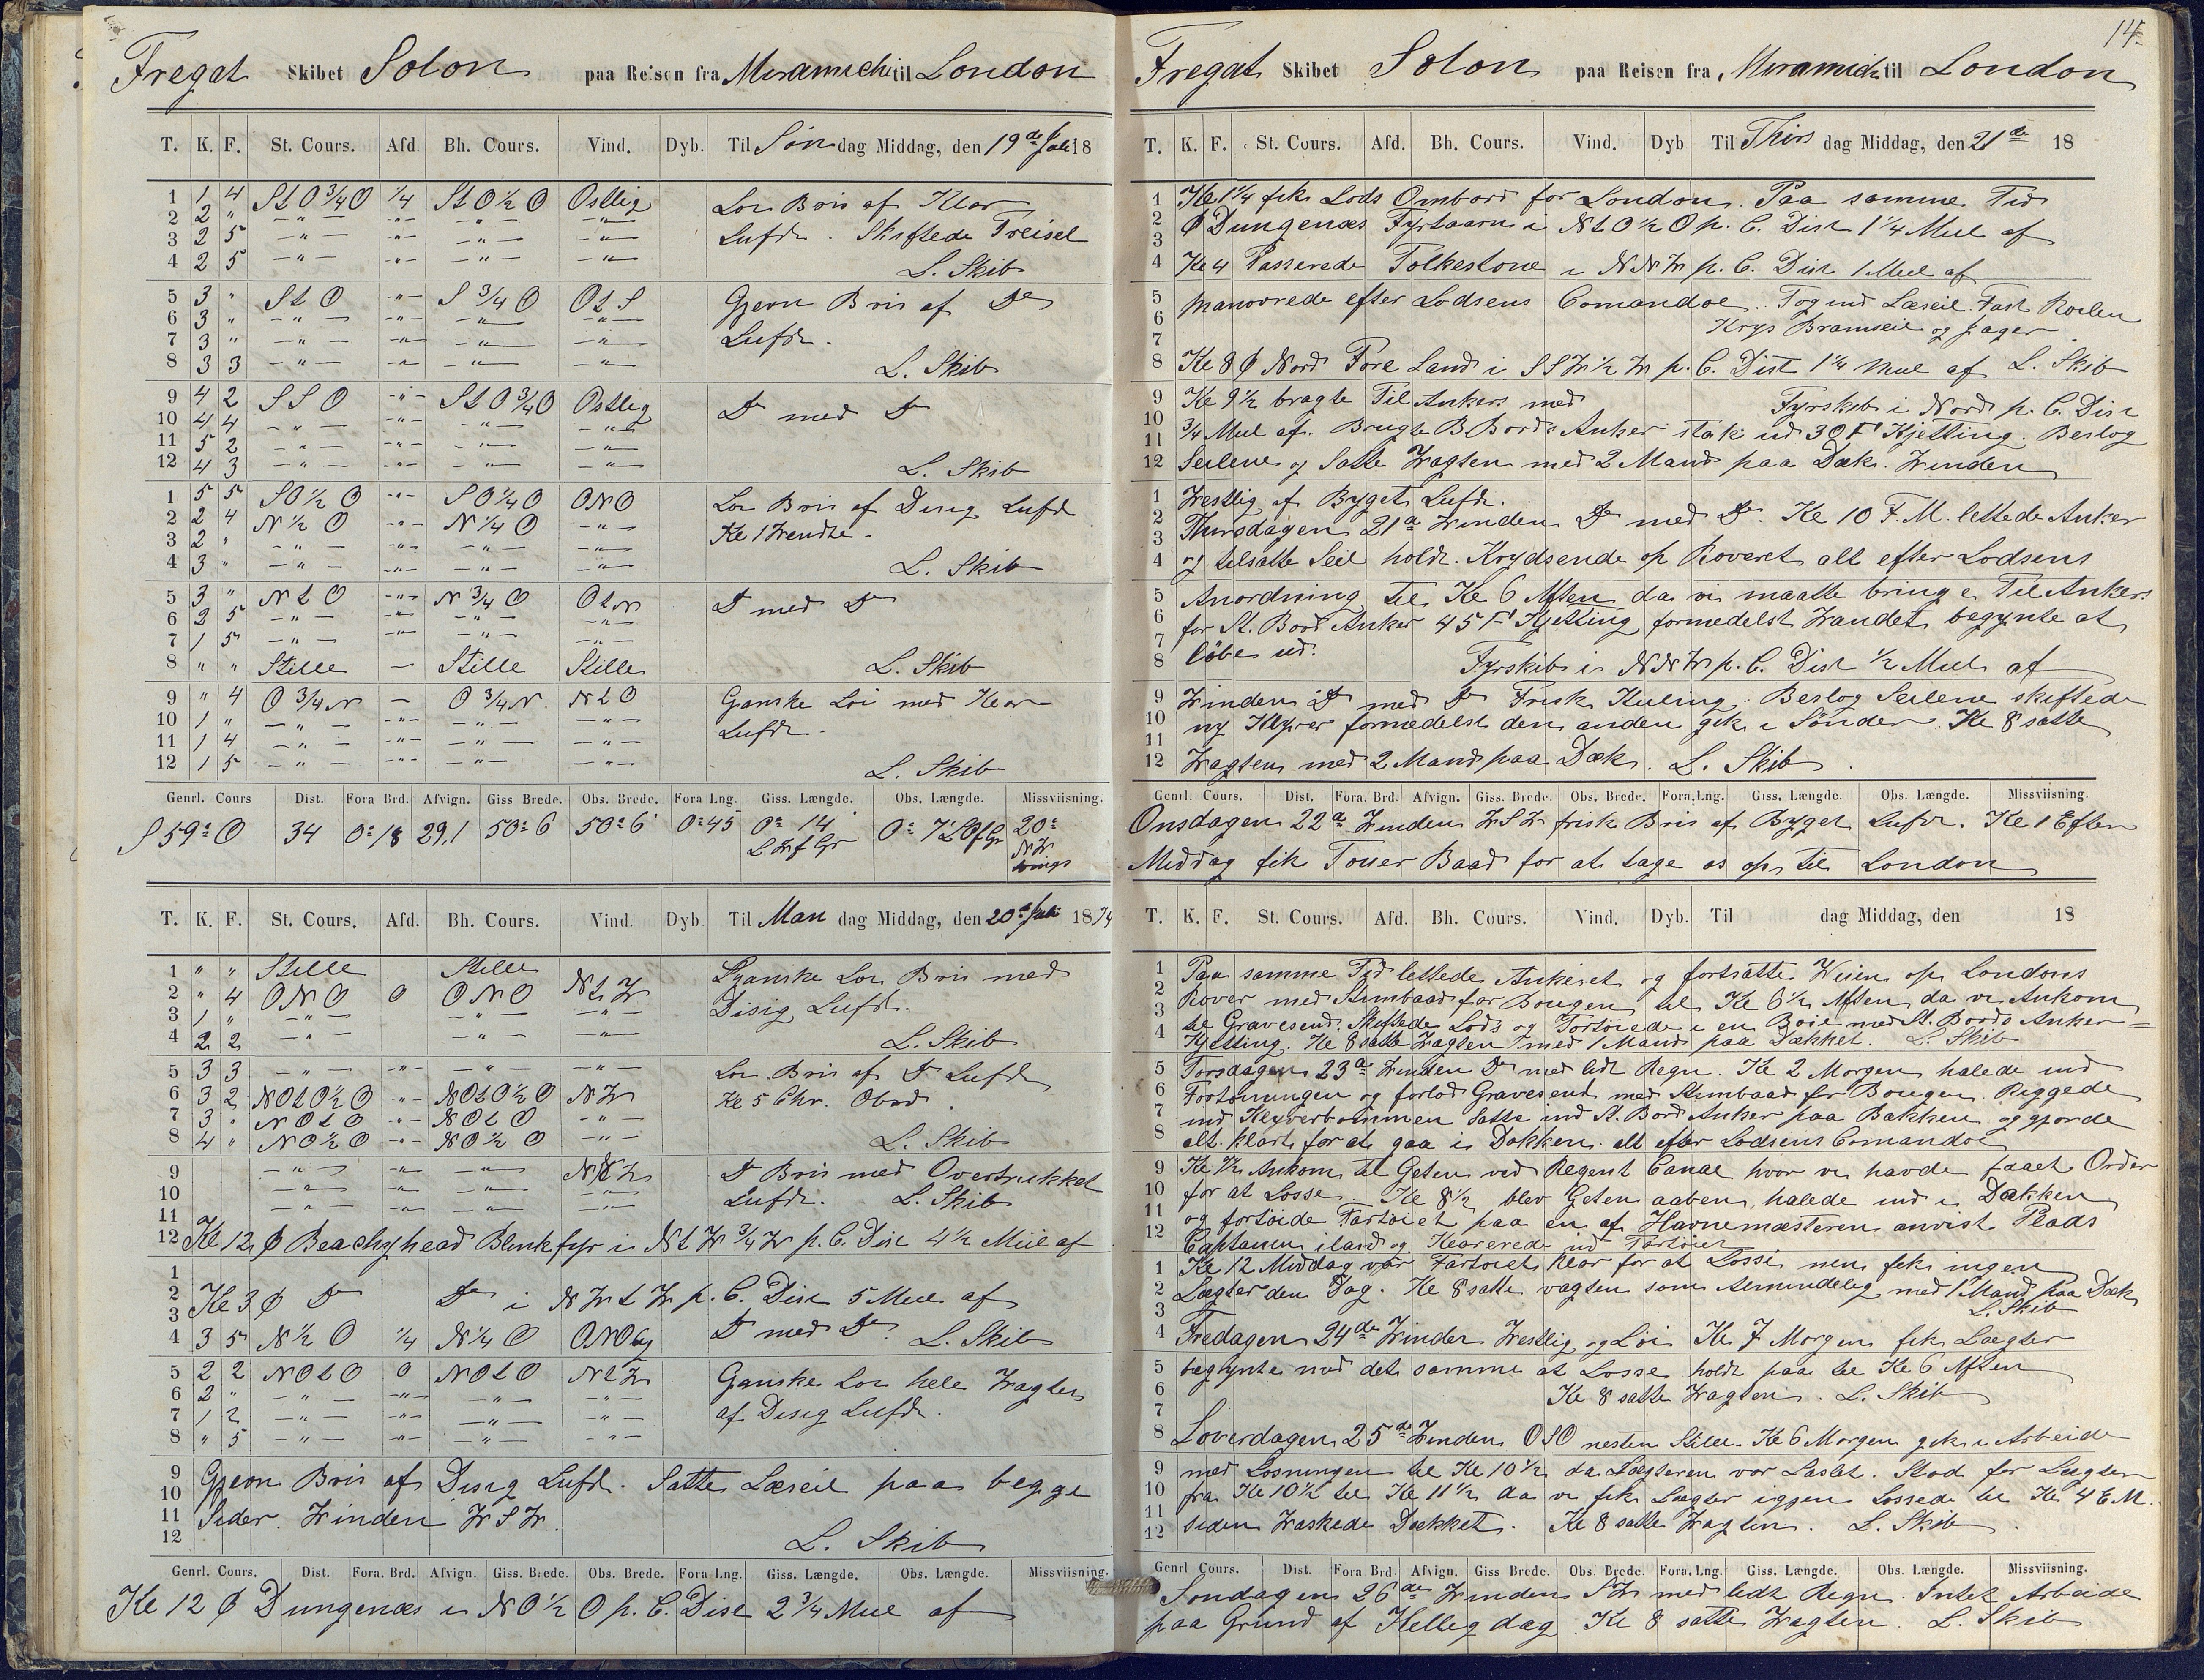 Fregat Skibet Solon paa Reisen fra Miramichi til London
T. K. F. St. Cours. Afd. Bh. Cours. Vind. Dyb. Til Søndag Middag, den 19de Juli 18
1 1 4 StO 3/4 O 1/4 StO 1/2 O Østlig Loi Bris af Klar
2 2 " -"- -"- -"- -"-
3 2 5 -"- -"- -"- -"- Lufdt. Skiftede Treisel
4 2 5 -"- -"- -"- -"- L. Skib
5 3 " St O -"- S 3/4 O Ot S Gjevn Bris af Do
6 3 " -"- -"- -"- -"-
7 3 " -"- -"- -"- -"- Lufdt.
8 3 3 -"- -"- -"- -"- L. Skib
9 4 2 SSO -"- StO 3/4 O Østlig Do med Do
10 4 4 -"- -"- -"- -"-
11 5 2 -"- -"- -"- -"-
12 4 3 -"- -"- -"- -"- L. Skib
1 5 5 SO 1/2 O -"- SO 1/4 O ONO Loi Bris af Disig Lufdt
2 2 4 N 1/2 O -"- N 1/4 O -"- Kl 1 Wendte.
3 2 " -"- -"- -"- -"-
4 3 " -"- -"- -"- -"- L. Skib
5 3 " Nt O -"- N 3/4 O Ot N Do med Do
6 2 5 -"- -"- -"- -"-
7 1 5 -"- -"- -"- -"-
8 " " Stille - Stille Stille L. Skib
9 " 4 O 3/4 N - O 3/4 N Nt O Ganske Loi med Klar
10 1 " -"- -"- -"- -"- Lufdt.
11 1 4 -"- -"- -"- -"-
12 1 5 -"- -"- -"- -"- L. Skib
Genrl. Cours Dist. Fora Brd. Afvign. Giss Brede. Obs. Brede. Fora Lng. Giss. Længde. Obs. Længde. Missviisning.
S 59° O 34 0° 18 29,1 50° 6 50° 6' 0° 45 0° 14' L W f Gr 0° 7' L O f Gr 20° NW
T. K. F. St. Cours. Afd. Bh. Cours. Vind. Dyb. Til Mandag Middag, den 20de Juli 1874
1 " " Stille Stille Ganske Loi Bris med
2 " 4 ONO 0 ONO Nt W
3 1 " -"- -"- -"- Disig Lufdt.
4 2 2 -"- -"- -"- L. Skib
5 3 3 -"- -"- -"- -"- Loi Bris af Do Lufdt
6 3 2 NOtO 1/2 O -"- NOtO 1/2 O NW Kl 5 Chr. Obsd.
7 3 " NOtO -"- NOtO -"-
8 4 " NO 1/2 O -"- NO 1/2 O -"- L. Skib
9 -"- -"- -"- NNW Do Bris med Overtrukket
10 -"- -"- -"- Lufdt. L. Skib
11 -"- -"- -"-
12 Kl 12 Φ Beachyhead Blinkfyr i Nt W 3/4 W p. C. Dist 4 1/2 Miil af
1
2
3 Kl 3 Φ Do Do i NWtW p. C. Dist 5 Mill af
4 3 5 N 1/2 O 1/4 N 1/4 O Do med Do. L. Skib
5 2 2 NOtO 0 NOtO NtW Ganske Loi hele Wagten
6 2 " -"- -"- -"- -"-
7 1 2 -"- -"- -"- -"- af Disig Lufdt.
8 " 5 -"- -"- -"- -"-
9 Gjevn Bris af Disig Lufdt. Satte Læseil paa begge
10
11 Sider. Winden WSW.
12 L. Skib
Genrl. Cours. Dist. Fora. Brd. Afvign. Giss. Brede. Obs. Brede. Fora Lng. Giss. Længde. Obs. Længde. Missviisning.
Kl 12 Φ Dungenæs i NO 1/2 O p. C. Dist 2 3/4 Mill af
14.
Fregat Skibet Solon paa Reisen fra Miramichi til London
T. K. F. St. Cours. Afd. Bh. Cours. Vind. Dyb Til Thirsdag Middag, den 21de 18
1 Kl 1 1/4 fik Lods Ombord for London. Paa samme Tid
2
3 Φ Dungenæs Fyrtaarn i NtO 1/2 O p. C. Dist 1 1/4 Mil af
4 Kl 4 Passerede Folkestone i NNW p. C. Dist 1 Mil af
5 Manovrede efter Lodsens Comandoe. Tog ind Læseil. Fast Roelen
6
7 Krys Bramseil og Jager
8 Kl 8 Φ Nord Foreland i SSW 1/2 W p. C. Dist 1 1/4 Mil af L. Skib
9 Kl 9 1/2 bragte Til Ankers med Fyrskib i Nord p. C. Dist
10 3/4 Mil af. Brugte B Bords Anker stak ud 30 F Kjetting. Beslog
11
12 Seilene og Satte Wagten med 2 Mand paa Dæk. Winden
1 Westlig af Byget Lufdt.
2
3 Thirsdagen 21de Winden Do med Do. Kl 10 F. M. lettede Anker
4 og tilsatte Seil holdt Krydsende op Roveret alt efter Lodsens
5 Anordning til Kl 6 Aften da vi maatte bringe Til Ankers
6 for St. Bord Anker 45 F Kjetting formedelst Wandet begynte at
7
8 løbe ud. Fyrskib i NNW p. C. Dist 1/2 Mil af
9 Winden Do med Do Frisk Kuling. Beslog Seilene skiftede
10 ny Klyver formedelst den anden gik i Sønder. Kl 8 satte
11
12 Wagten med 2 Mand paa Dæk. L. Skib.
Genrl. Cours. Dist. Fora. Brd. Afvign. Giss. Brede. Obs. Brede. Fora. Lng. Giss. Længde. Obs. Længde. Missviisning.
Onsdagen 22de Winden WSW frisk Bris af Byget Lufdt. Kl 1 Efter
Middag fik Touer Baad for at tage os op til London
T. K. F. St. Cours. Afd. Bh. Cours. Vind. Dyb. Til dag Middag, den 18
1 Paa samme Tid lettede Ankeret og fortsatte Weien op Londons
2
3 Rover med Stimbaad for Bougen til Kl 6 1/2 Aften da vi Ankom
4 til Gravesend. Skiftede Lods og Fortøiede i en Boie med St. Bords Anker =
Kjetting. Kl 8 satte Wagten med 1 Mand paa Dækket. L. Skib
5 Torsdagen 23de Winden Do med lidt Regn. Kl 2 Morgen halede ind
6 Fortøiningen og forlod Gravesend med Stimbaad for Bougen. Riggede
7 ind Klyverbommen Satte ind St. Bord Anker paa Bakken og gjorde
8 alt klart for at gaa i Dokken. alt efter Lodsens Comandoe
9 Kl Ankom til Geten ved Regent Canal hvor vi havde faaet Order
10 for at Losse. Kl 8 1/2 blev Geten aaben, halede ind i Dokken
11 og fortøide Fartøiet paa en af Havnemæsteren anvist Plads
12 Captainen iland og Klarerede ind Fartøiet
1 Kl 12 Middag var Fartøiet klar for at Losse men fik ingen
2 Lægter den Dag. Kl 8 satte vagten som Almindelig med 1 Mand paa Dæk
3 L. Skib
4 Fredagen 24de Winden Westlig og Loi Kl 7 Morgen fik Lægter
5 begynte med det samme at Losse holdt paa til Kl 6 Aften
6 Kl 8 satte Wagten. L. Skib
7
8 Loverdagen 25de Winden OSO nesten Stille. Kl 6 Morgen gik i Arbeide
9 med Losningen til Kl 10 1/2 da Lægteren var Lastet. Stod for Lægter
10 fra Kl 10 1/2 til Kl 11 1/2 da vi fik Lægter iggjen Lossede til Kl 4 E. M.
11
12 siden Waskede Dækket. Kl 8 satte Wagten. L. Skib.
Genrl Cours. Dist. Fora Brd. Afvign. Giss Brede. Obs. Brede. Fora. Lng. Giss. Længde. Obs. Længde. Missviisning.
Søndagen 26de Winden SW med lidt Regn. Intet Arbeide
paa Grund af Hellegdag. Kl 8 satte Wagten. L. Skib